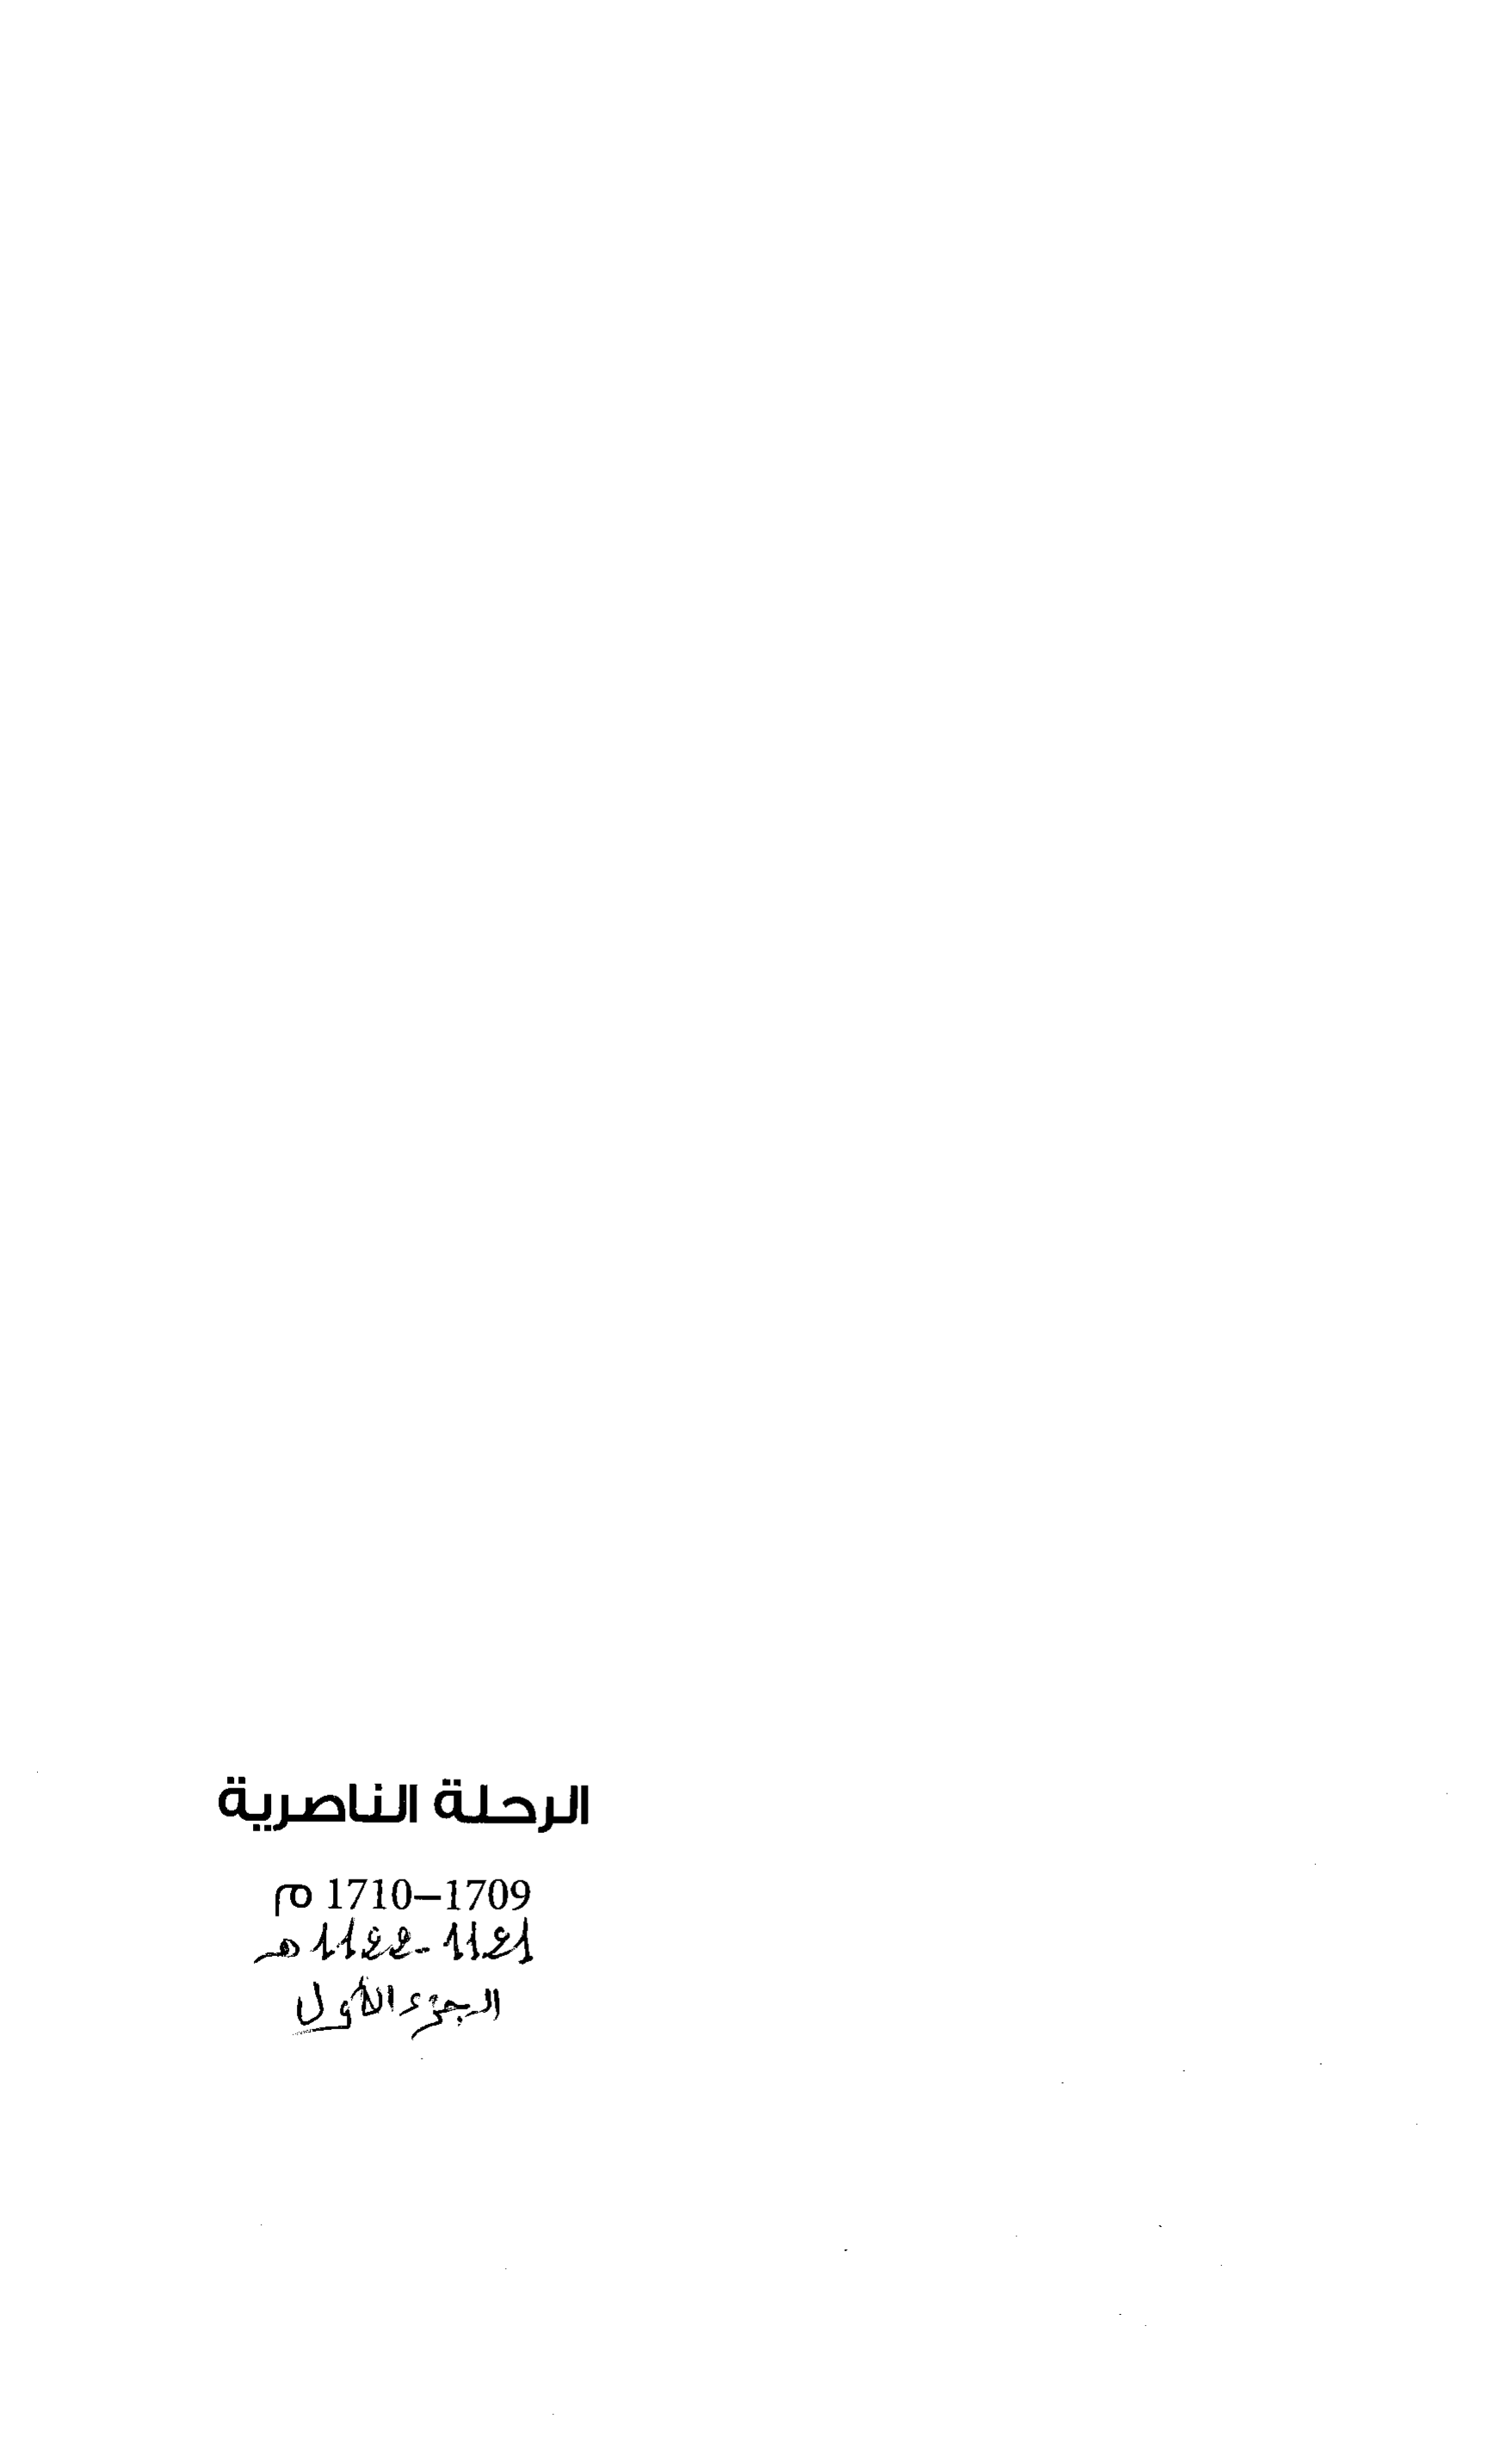 الرحلة الناصرية
1709–1710 م
1121-1122 هـ
الجزء الأول